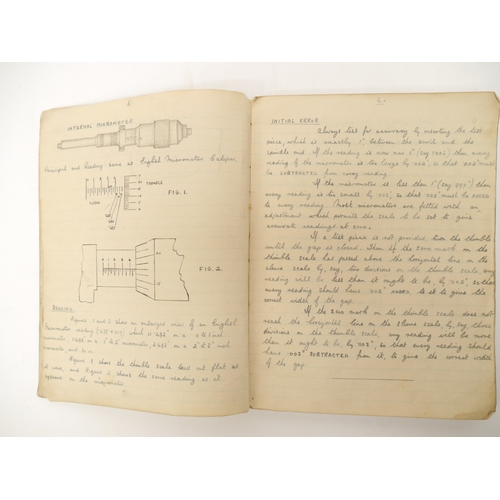 INTERNAL MICROMETER
Principal and Reading same as English Micrometer Caliper.
THIMBLE
SLEEVE
FIG. 1.
FIG. 2.
READING.
Figures 1 and 2 show an enlarged view of an English
Micrometer reading
micrometer,
micrometer, and so on.
Figure 1 shows the thimble scale laid out flat as
it were, and Figure 2 shows the same reading as it
appears on the micrometer.
INITIAL ERROR
Always test for accuracy by inserting the test
piece, which is exactly 1", between the anvil and the
spindle end. If the reading is now over 1" (say 1.002") then every
reading of the micrometer is too large by .002" so that .002" must
be SUBTRACTED from every reading.
If the micrometer is less than 1" (say
every reading is too small by so that must be ADDED
to every reading. Most micrometers are fitted with an
adjustment which permits the scale to be set to give
accurate readings at zero.
If a test piece is not provided, turn the thimble
until the gap is closed. Then if the zero mark on the
thimble scale has passed above the horizontal line on the
sleeve scale by, say, two divisions on the thimble scale, any
reading will be less than it ought to be, by .002", so that
every reading should have .002" added to it to give the
correct width of the gap.
If the zero mark on the thimble scale does not
reach the horizontal line on the sleeve scale by, say three
divisions on the thimble scale, any reading will be more
than it ought to be, by .003", so that every reading should
have .003" SUBTRACTED from it, to give the correct width
of the gap.